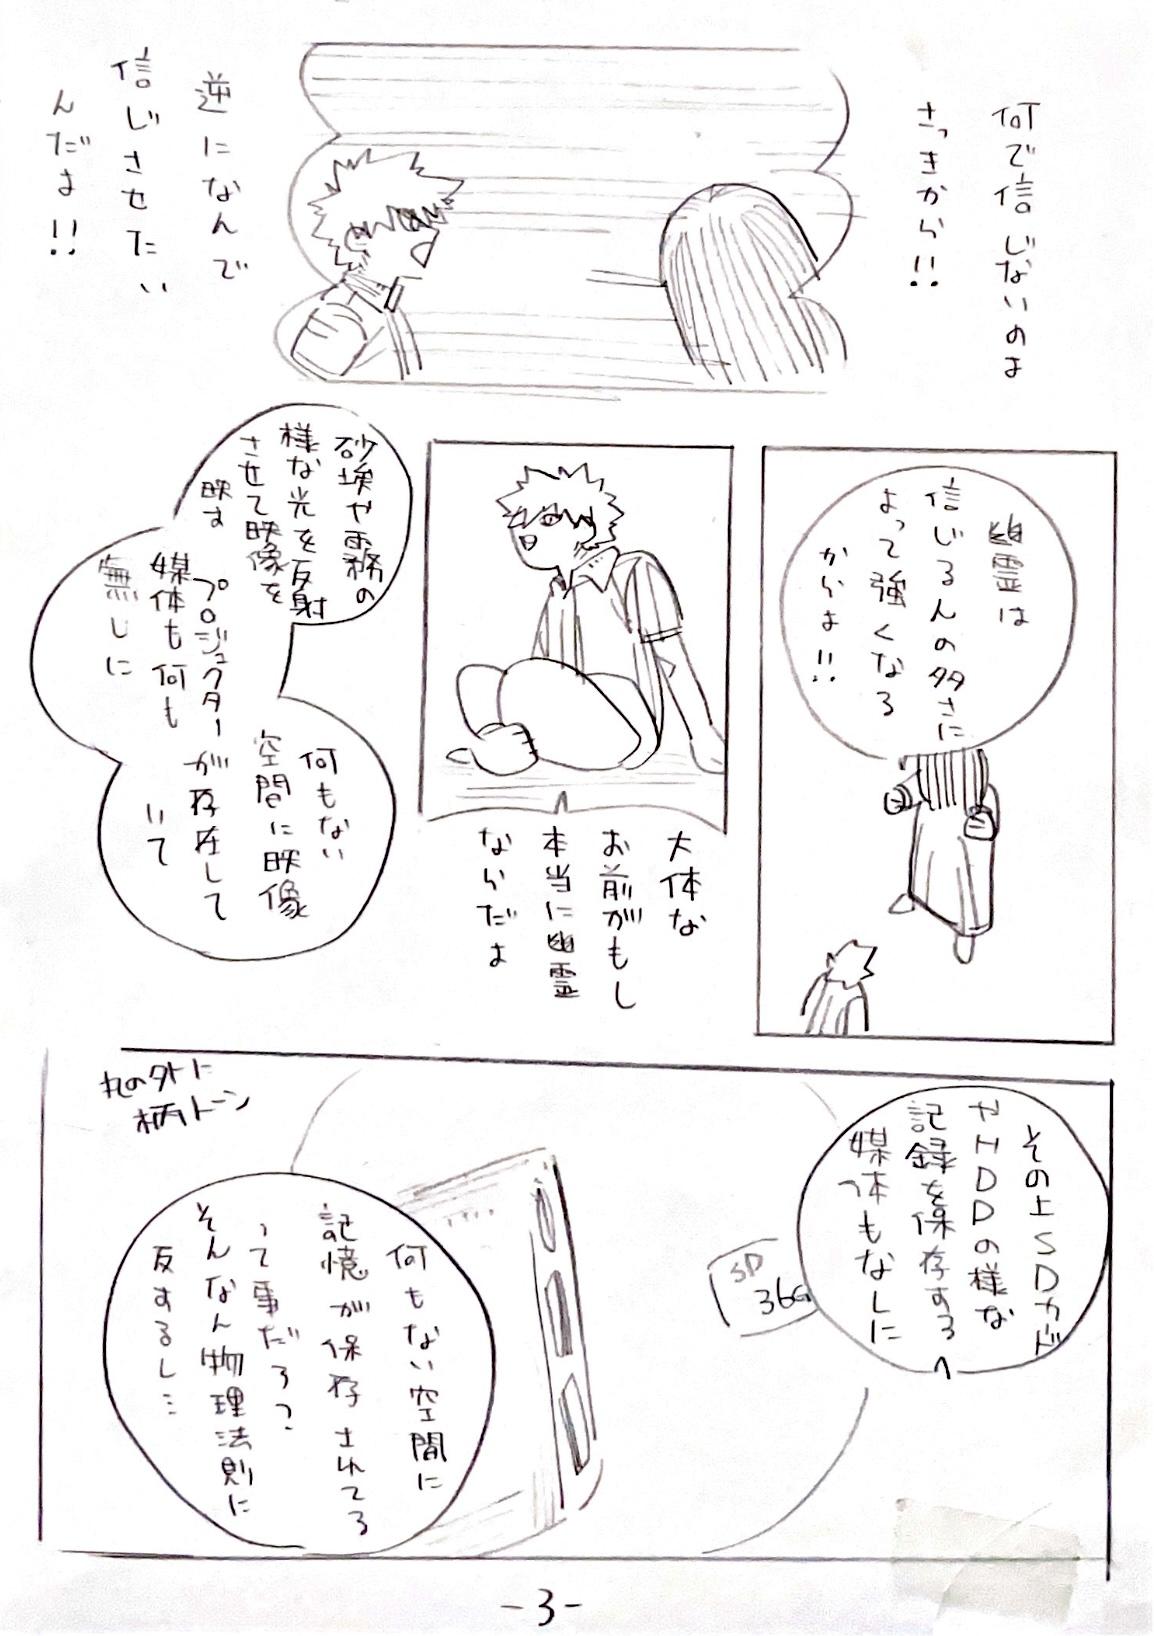 何で信じないのよ
さっきから!!
逆になんで
信じさせたい
んだよ!!
幽霊は
信じるんの多さに
よって強くなる
からよ!!
大体な
お前がもし
本当に幽霊
ならだよ
何もない
空間に映像
プロジェクターが存在して
いて
媒体も何も
無しに
砂埃や霧の
様な光を反射
させて映像を
映す
その上SDカド
やHDDの様な
記録を保存する
媒体もなしに
SD
36G
何もない空間に
記憶が保存されてる
って事だろ?
そんなん物理法則に
反するし…
丸の外に
柄トーン
-3-